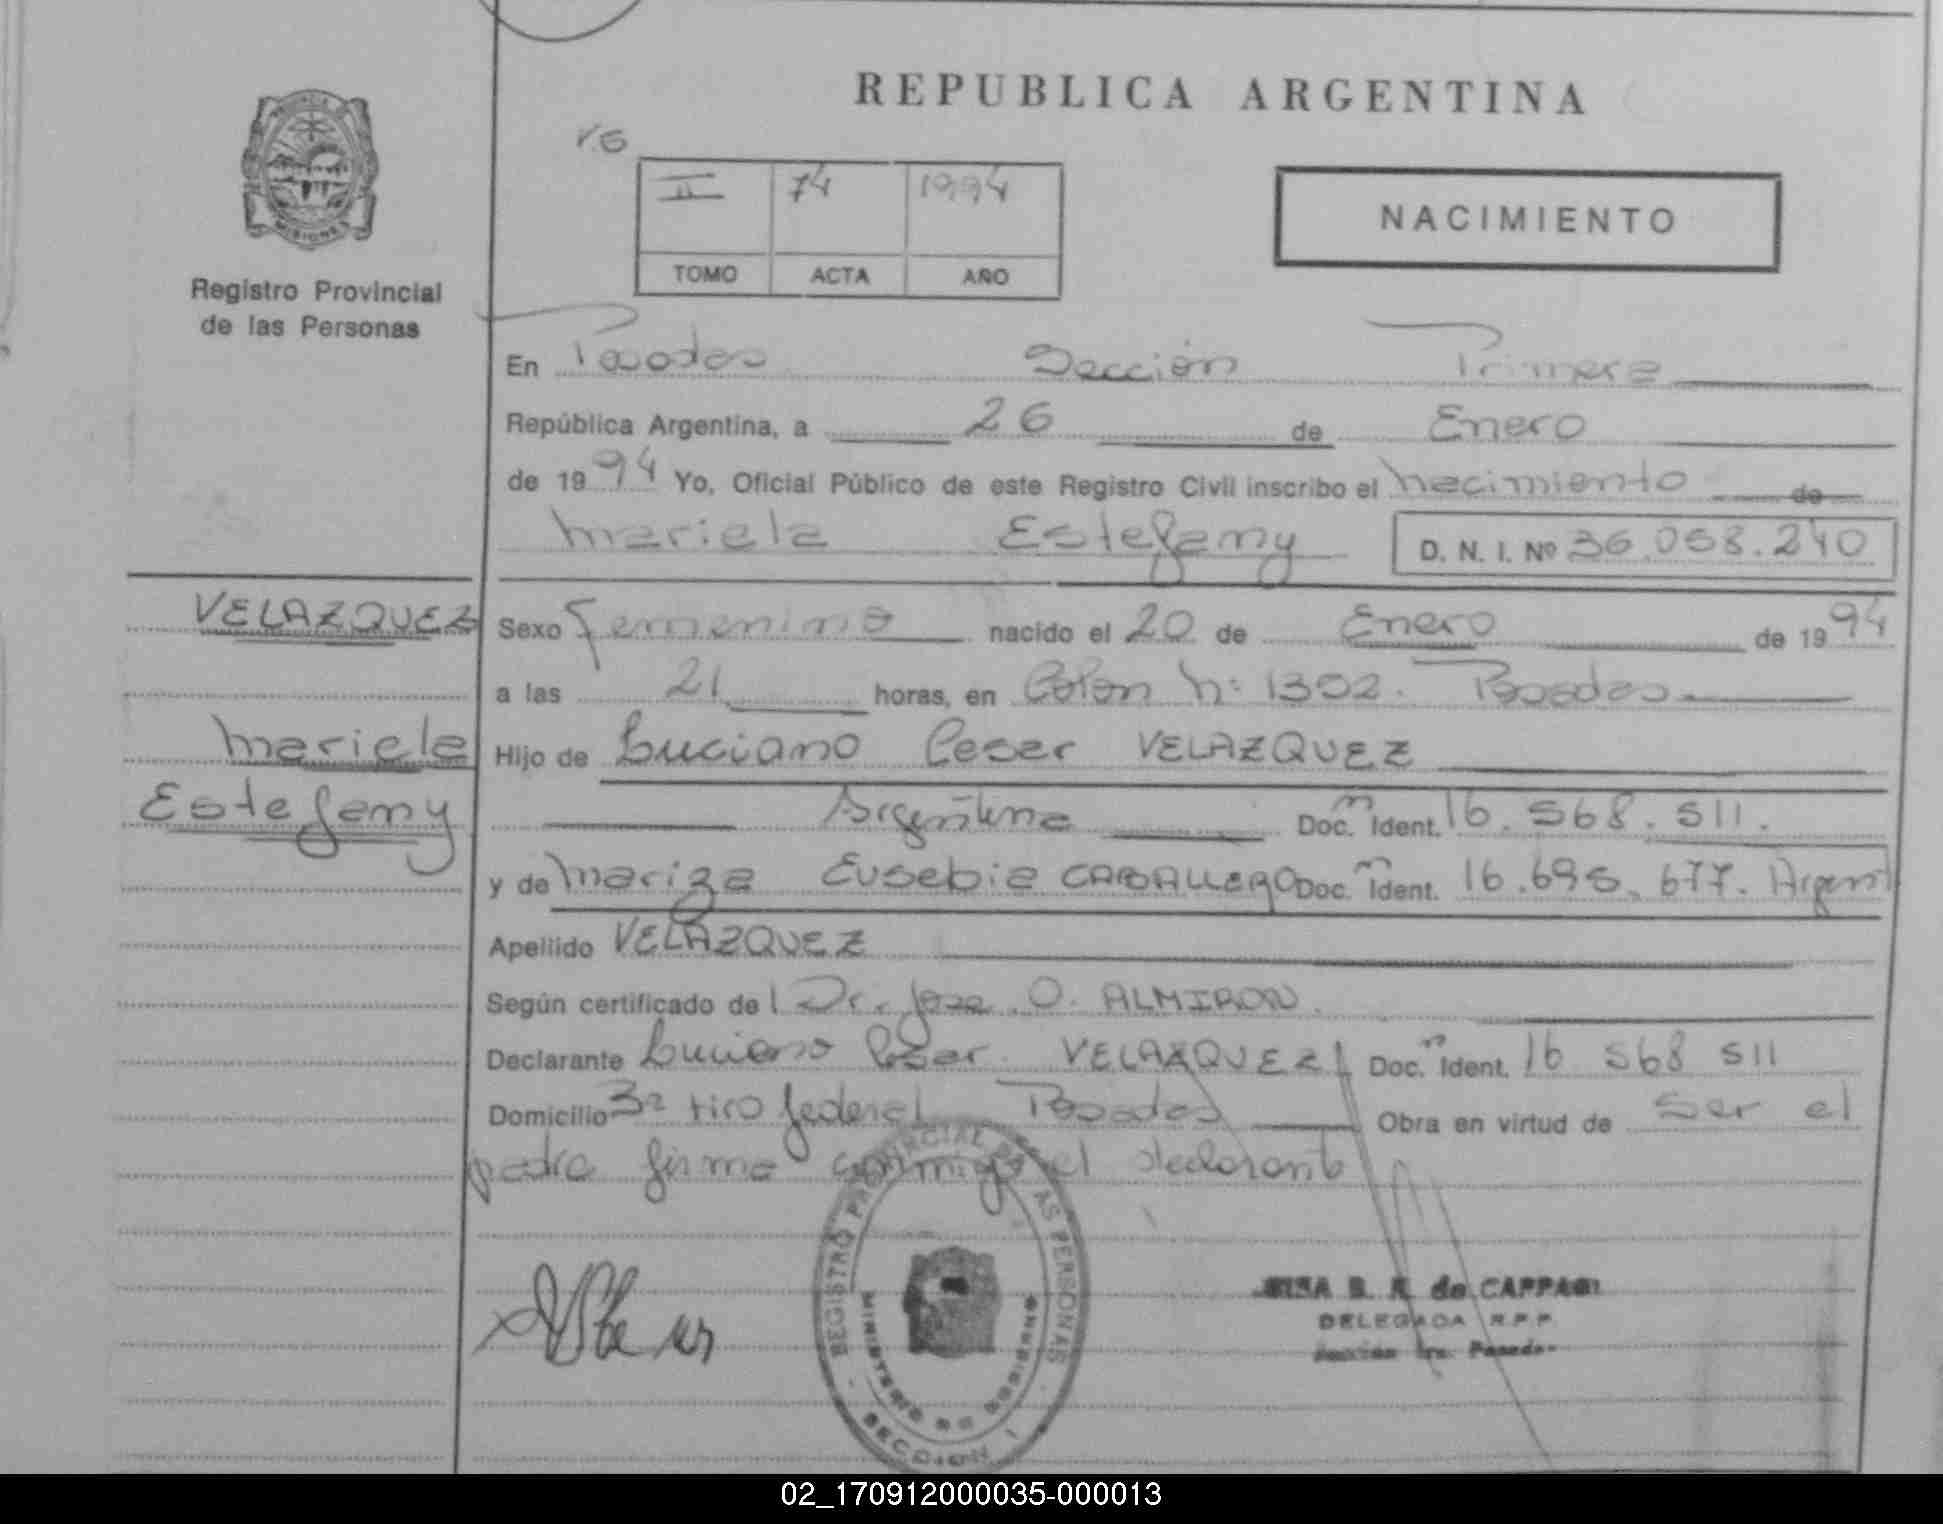 REPUBLICA ARGENTINA
PROVINCIA DE
MISIONES
Registro Provincial
de las Personas
II 74 1994
TOMO ACTA AÑO
NACIMIENTO
En Posadas Sección Primera
República Argentina, a 26 de Enero
de 1994 Yo, Oficial Público de este Registro Civil inscribo el nacimiento de
Mariela Estefany D. N. I. Nº 36.058.240
VELAZQUEZ
Mariela
Estefany
Sexo Femenino nacido el 20 de Enero de 1994
a las 21 horas, en Colon Nº 1352. Posadas
Hijo de Luciano Cesar VELAZQUEZ
Argentina Doc. Ident. 16.568.511.
y de Mariza Eusebia CABALLERO Doc. Ident. 16.695.677. Argent
Apellido VELAZQUEZ
Según certificado de Dr. Jose O. ALMIRON.
Declarante Luciano Cesar VELAZQUEZ Doc. Ident. 16 568 511
Domicilio 3ª tiro federal Posadas Obra en virtud de ser el
padre firma conmigo el declarante
REGISTRO PROVINCIAL DE LAS PERSONAS
MINISTERIO DE GOBIERNO
SECCION 1
B. R. de CAPPAGI
DELEGADA R.P.P.
Sección 1ra. Posadas
02_170912000035-000013